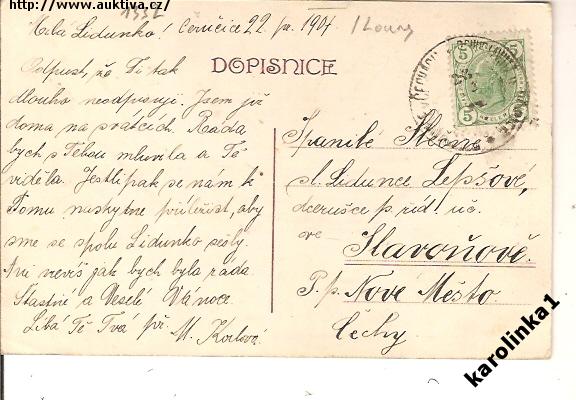 http://www.auktiva.cz/
1332
Milá Lidunko! Ceručice 22 pr. 1907
/ Louny
DOPISNICE
Odpusť, že Ti tak
dlouho neodpisuji. Jsem již
doma na svátcích. Ráda
bych s Tebou mluvila a Tě
viděla. Jestli pak se nám k
Tomu naskytne příležitost, aby
sme se spolu Lidunko sešly.
Ani nevíš jak bych byla ráda.
Šťastné a Veselé Vánoce.
Líbá Tě Tvá př. M.
5 5
5
Spanilé Slečně
sl. Lidunce Lepšové,
dcerušce p. říd. uč.
ve
Slavoňově
P. p. Nové Město
Čechy.
karolinka1